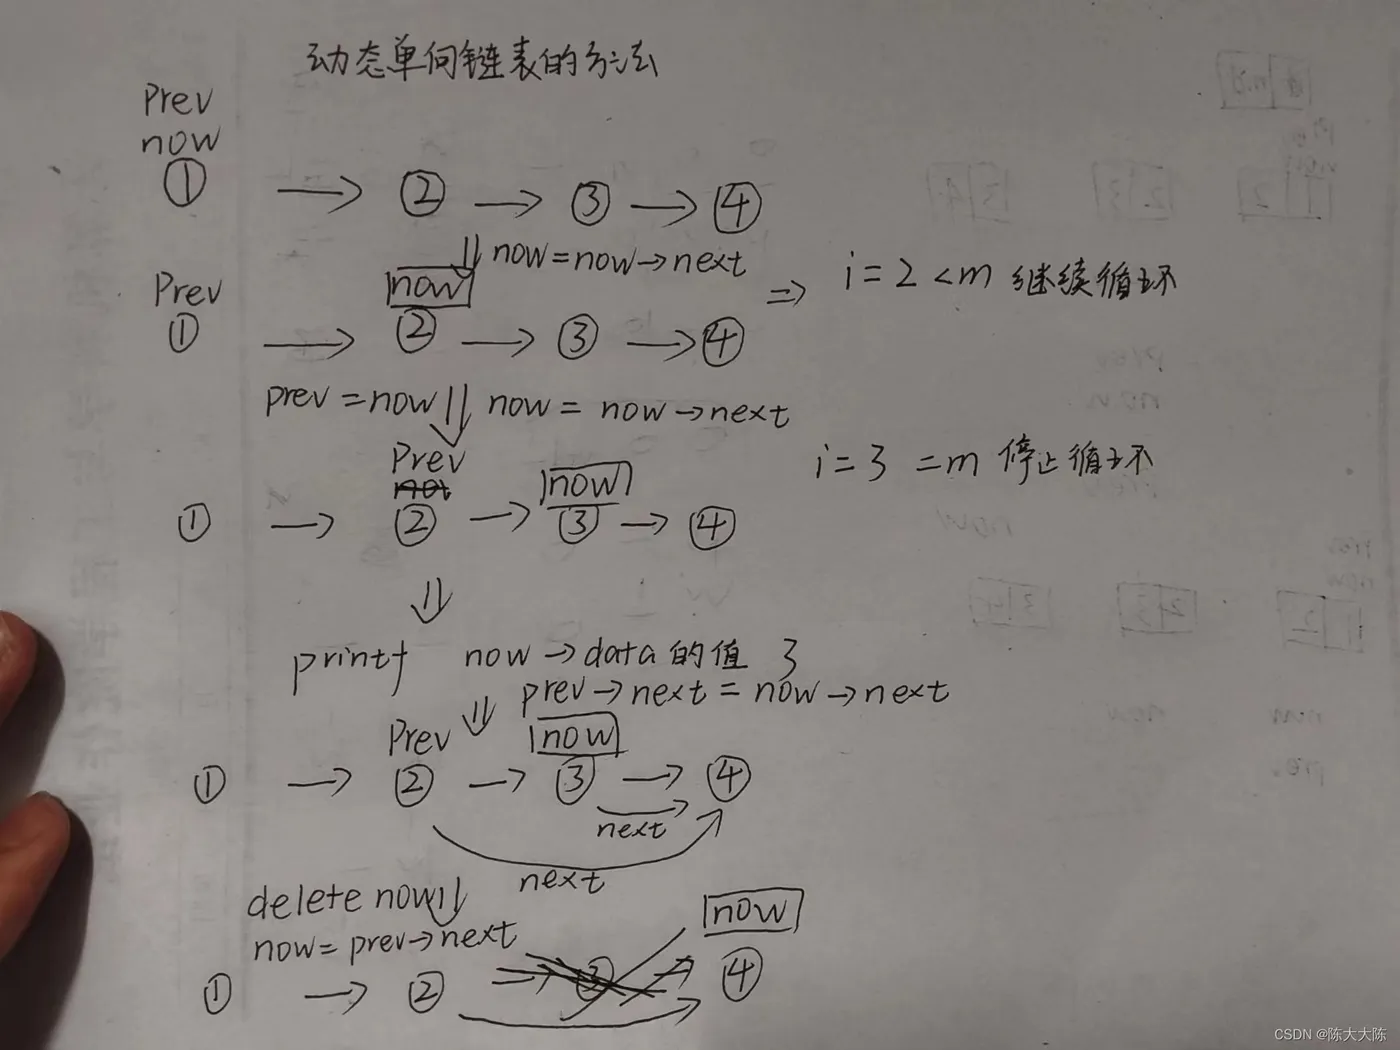 动态单向链表的方法
Prev
now
① → ② → ③ → ④
now=now→next
Prev
now
⇒ i=2<m 继续循环
① → ② → ③ → ④
prev=now now=now→next
i=3 =m 停止循环
Prev
now
① → ② → ③ → ④
printf now→data的值 3
prev→next=now→next
Prev
now
① → ② → ③ → ④
next
next
delete now
now
now=prev→next
① → ② ③ ④
CSDN @陈大大陈